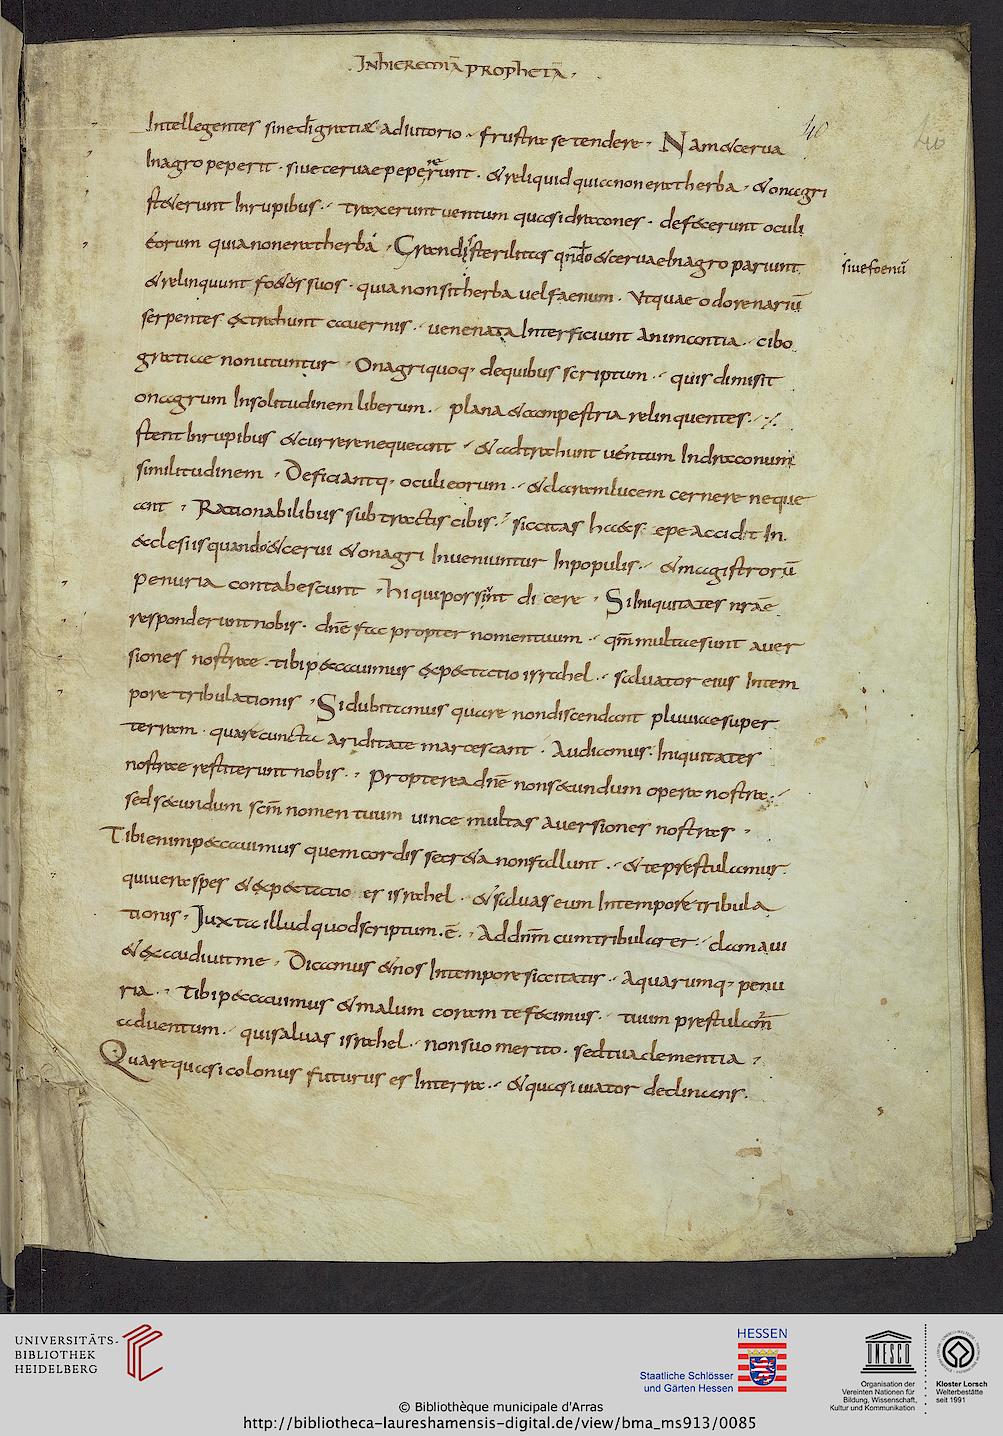 INHIEREMIĀ PROPHETĀ
40
40
Intellegentes sine dī gratiae adiutorio frustra se tendere. Nam & cerua
In agro peperit. siue ceruae pepererunt. & reliquid quia non erat herba. & onagri
st&erunt In rupibus. traxerunt uentum quasi dracones. defecerunt oculi
eorum quia non erat herba. Grandis sterilitas qn̄do & ceruae In agro pariunt
siue foenū
& relinquunt fo&us suos. quia non sit herba uel faenum. Vt quae odore nariū
serpentes extrahunt cauernis. uenenata Interficiunt animantia. cibo
gratiae non utuntur. Onagri quoq, de quibus scriptum. quis dimisit
onagrum In solitudinem liberum. plana & campestria relinquentes.
stent In rupibus & currere nequeant. & adtrahunt uentum In draconum
similitudinem. Deficiantq, oculi eorum. & claram lucem cernere neque
ant. Rationabilibus subtractis cibis. siccitas haec sepe accidit In
ecclesiis quando & cerui & onagri Inueniuntur In populis. & magistrorū
penuria contabescunt. hi qui porsunt dicere. Si Iniquitates nrāe
responderunt nobis. dnē fac propter nomen tuum. qm̄ multae sunt auer
siones nostrae. tibi peccauimus expectatio israhel. saluator eius In tem
pore tribulationis. Si dubitamus quare non discendant pluuiae super
terram. quare cuncta ariditate marcescant. Audiamus. Iniquitates
nostrae restiterunt nobis. Propterea dnē non secundum opera nostra.
sed secundum scm̄ nomen tuum uince multas auersiones nostras.
Tibi enim peccauimus quem cordis secreta non fallunt. & te prestulamur
qui uera spes & expectatio es israhel. & saluas eum In tempore tribula
tionis. Iuxta illud quod scriptum .ē. Ad dnm̄ cum tribularer. clamaui
& exaudiuit me. Dicamus & nos In tempore siccitatis. Aquarumq, penu
ria. Tibi peccauimus & malum coram te fecimus. tuum prestulam̄
aduentum. qui saluas israhel. non suo merito. sed tua clementia.
Quare quasi colonus futurus es In terra. & quasi uiator declinans.
UNIVERSITÄTS-
BIBLIOTHEK
HEIDELBERG
HESSEN
Staatliche Schlösser
und Gärten Hessen
UNESCO
Organisation der
Vereinten Nationen für
Bildung, Wissenschaft,
Kultur und Kommunikation
Kloster Lorsch
Welterbestätte
seit 1991
© Bibliothèque municipale d'Arras
http://bibliotheca-laureshamensis-digital.de/view/bma_ms913/0085